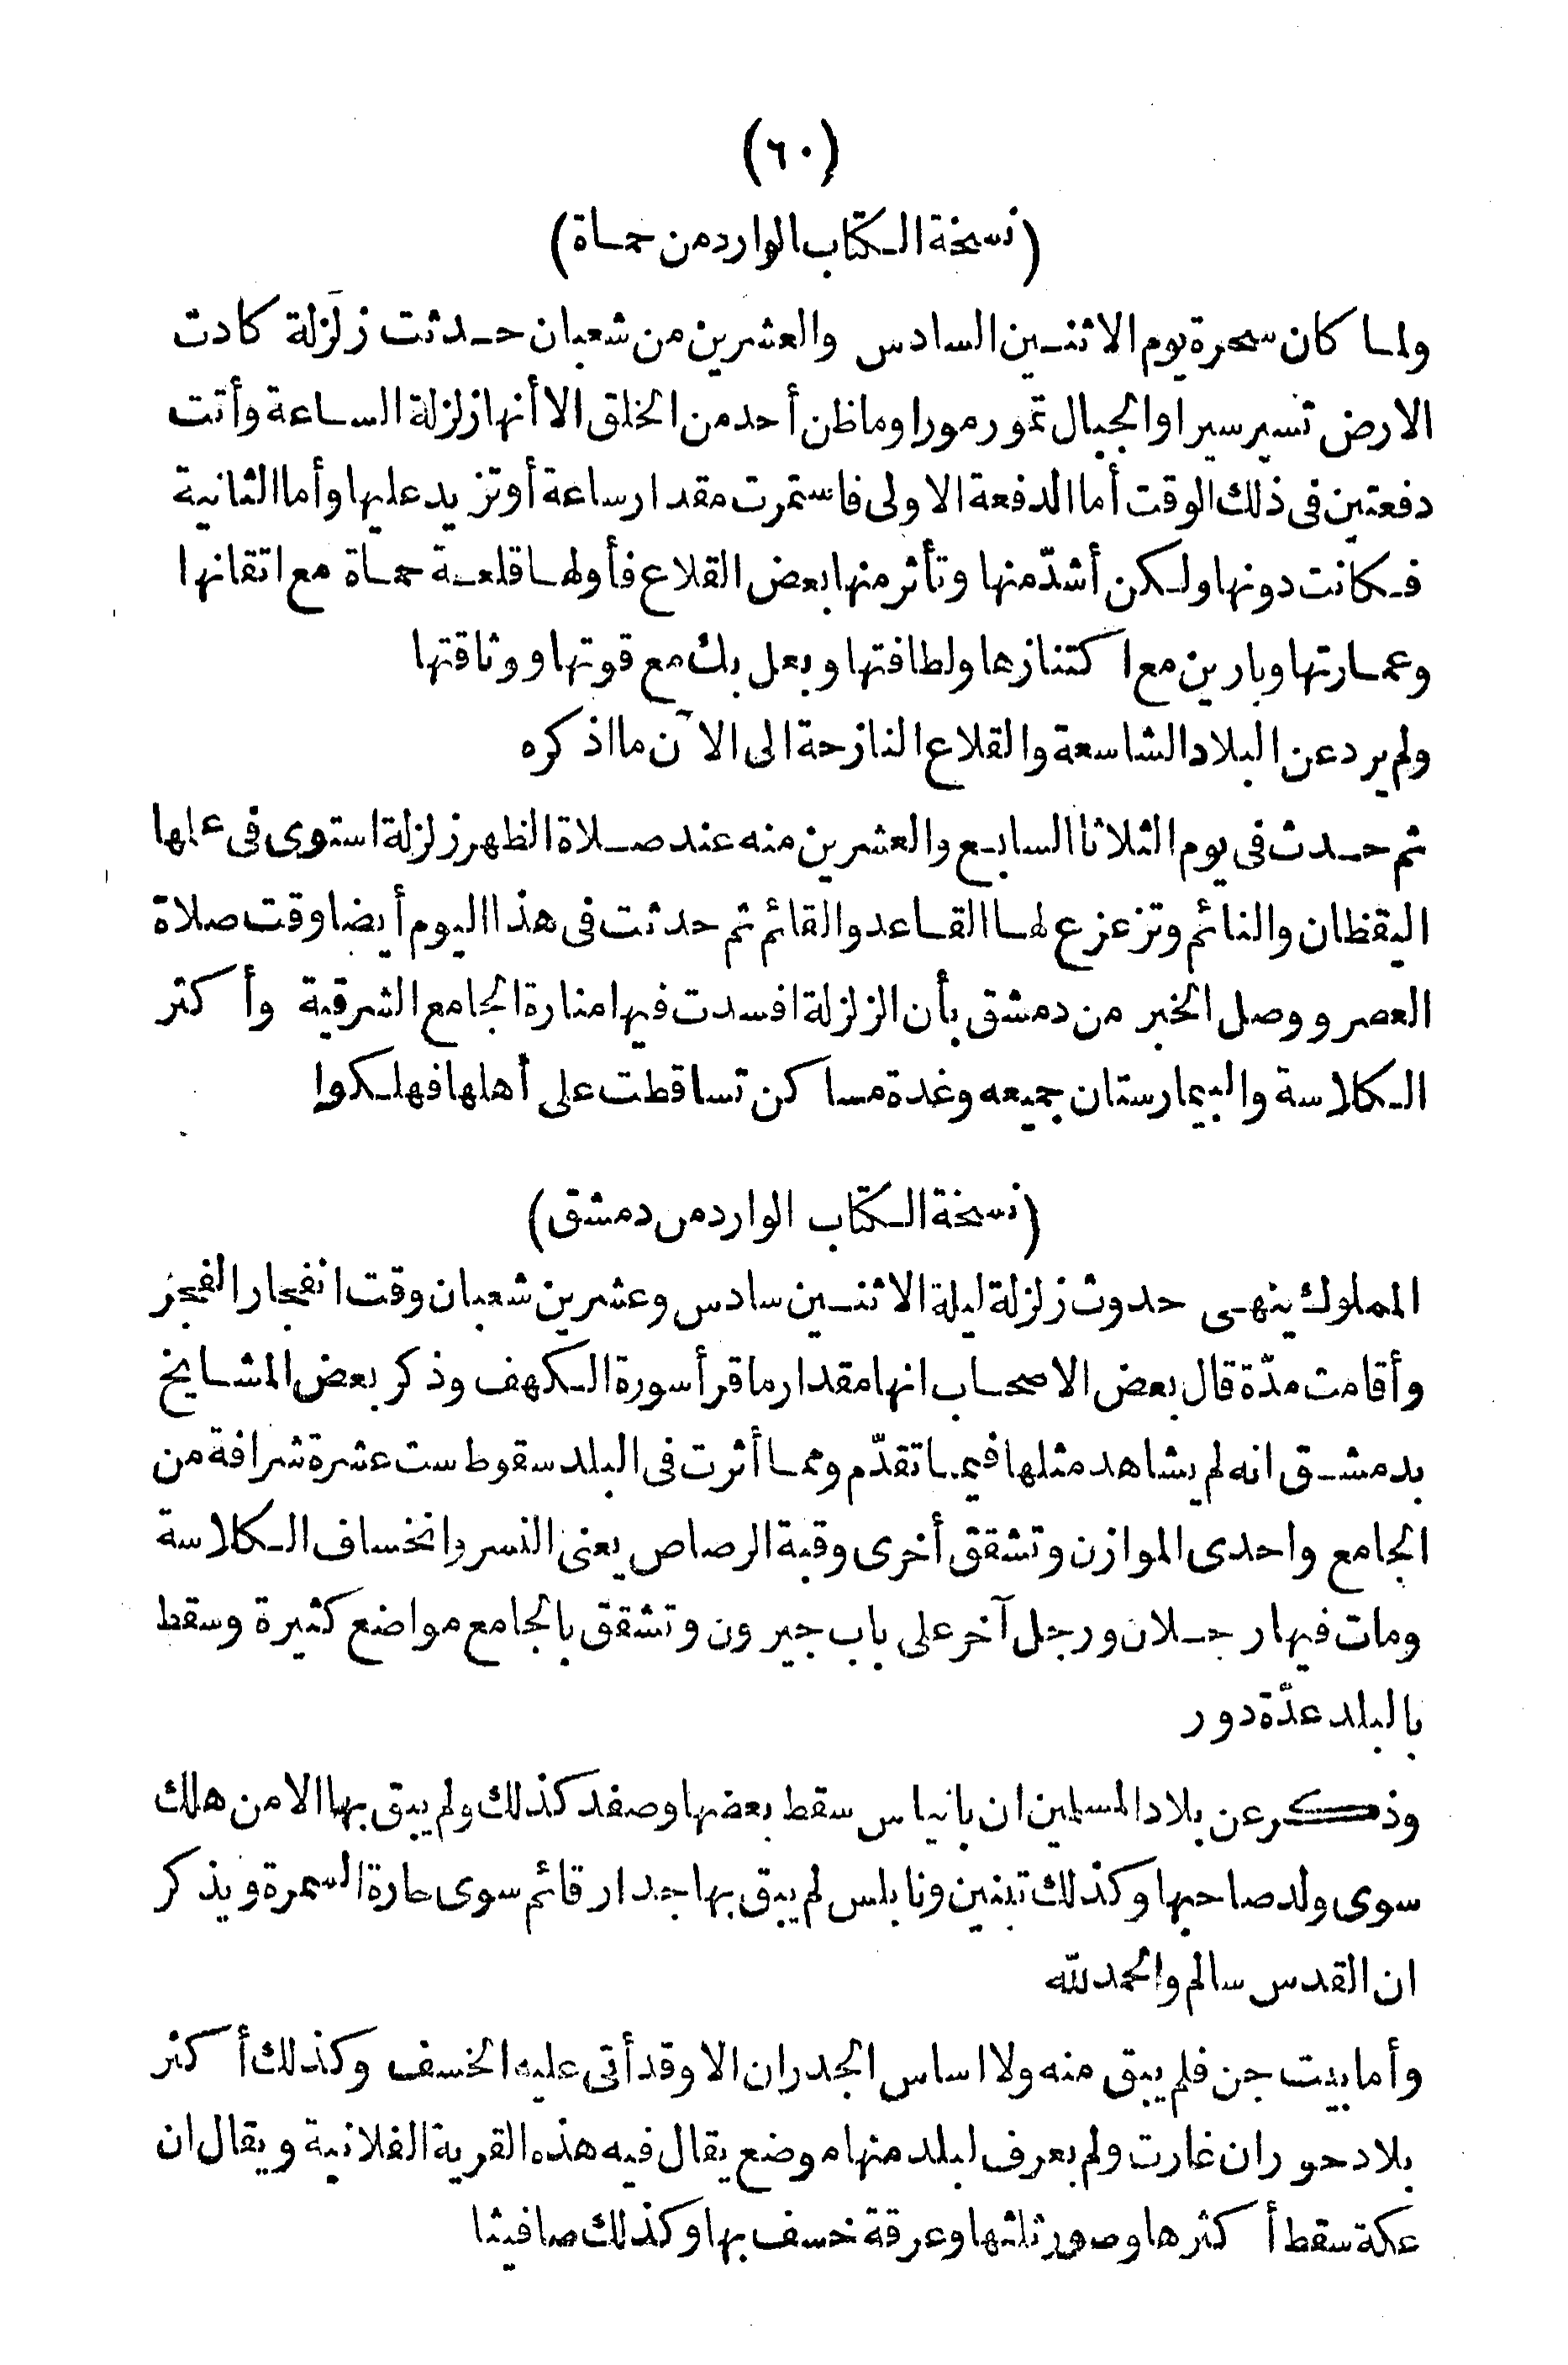 (٦٠)
(نسخة الكتاب الوارد من حماة)
ولما كان سحرة يوم الاثنين السادس والعشرين من شعبان حدثت زلزلة كادت
الارض تسير سيرا والجبال تمور مورا وما ظن أحد من الخلق الا أنها زلزلة الساعة وأتت
دفعتين فى ذلك الوقت أما الدفعة الاولى فاستمرت مقدار ساعة أو تزيد عليها وأما الثانية
فكانت دونها ولكن أشدّ منها وتأثر منها بعض القلاع فأولها قلعة حماة مع اتقانها
وعمارتها وبارين مع اكتنازها ولطافتها وبعل بك مع قوتها ووثاقتها
ولم يرد عن البلاد الشاسعة والقلاع النازحة الى الآن ما اذكره
ثم حدث فى يوم الثلاثا السابع والعشرين منه عند صلاة الظهر زلزلة استوى فى علمها
اليقظان والنائم وتزعزع لها القاعد والقائم ثم حدثت فى هذا اليوم أيضا وقت صلاة
العصر ووصل الخبر من دمشق بأن الزلزلة افسدت فيها منارة الجامع الشرقية وأكثر
الكلاسة والبيمارستان جميعه وعدة مساكن تساقطت على أهلها فهلكوا
(نسخة الكتاب الوارد من دمشق)
المملوك ينهى حدوث زلزلة ليلة الاثنين سادس وعشرين شعبان وقت انفجار الفجر
وأقامت مدّة قال بعض الاصحاب انها مقدار ما قرأ سورة الكهف وذكر بعض المشايخ
بدمشق انه لم يشاهد مثلها فيما تقدّم ومما أثرت فى البلد سقوط ست عشرة شرافة من
الجامع واحدى الموازن وتشقق أخرى وقبة الرصاص يعنى النسر وانخساف الكلاسة
ومات فيها رجلان ورجل آخر على باب جيرون وتشقق بالجامع مواضع كثيرة وسقط
بالبلد عدّة دور
وذكر عن بلاد المسلمين ان بانياس سقط بعضها وصفد كذلك ولم يبق بها الا من هلك
سوى ولد صاحبها وكذلك تبنين ونابلس لم يبق بها جدار قائم سوى حارة السمرة ويذكر
ان القدس سالم والحمد لله
وأما بيت جن فلم يبق منه ولا اساس الجدران الا وقد أتى عليه الخسف وكذلك أكثر
بلاد حوران غارت ولم يعرف لبلد منها موضع يقال فيه هذه القرية الفلانية ويقال ان
عكة سقط أكثرها وصور ثلثها وعرقة خسف بها وكذلك صافيثا